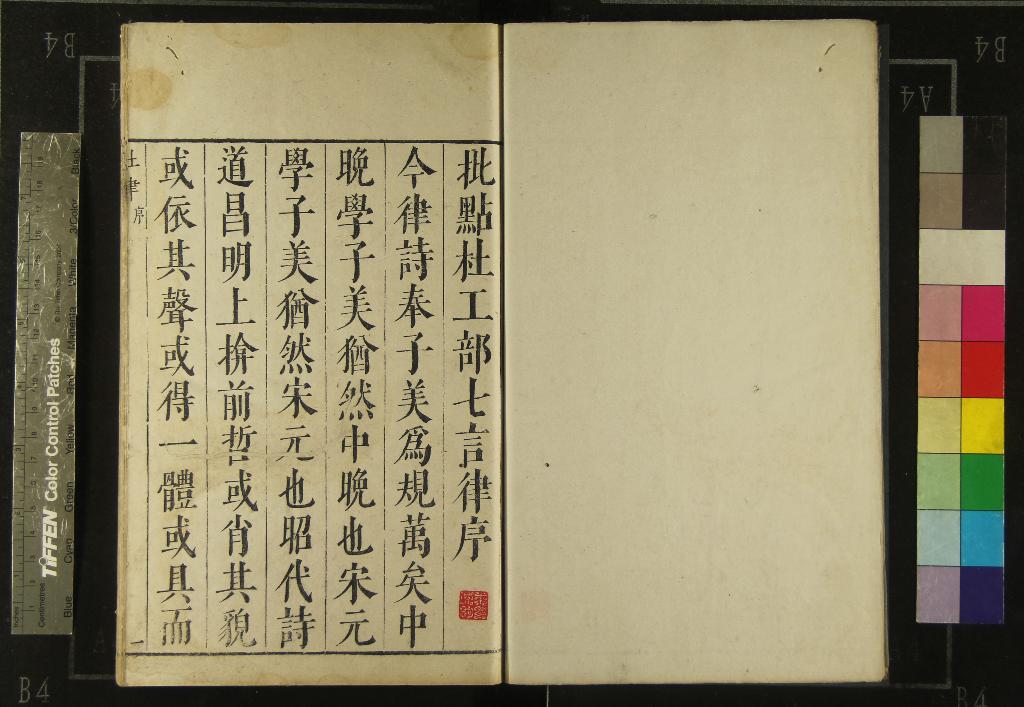 批點杜工部七言律序
今律詩奉子美爲規萬矣中
晚學子美猶然中晚也宋元
學子美猶然宋元也昭代詩
道昌明上掩前哲或肖其貌
或依其聲或得一體或具而
杜律 序
一
TIFFEN Color Control Patches
Blue
Cyan
Green
Yellow
Red
Magenta
White
3/Color
Black
Inches
Centimetres
B4
B4
A4
B4
B4